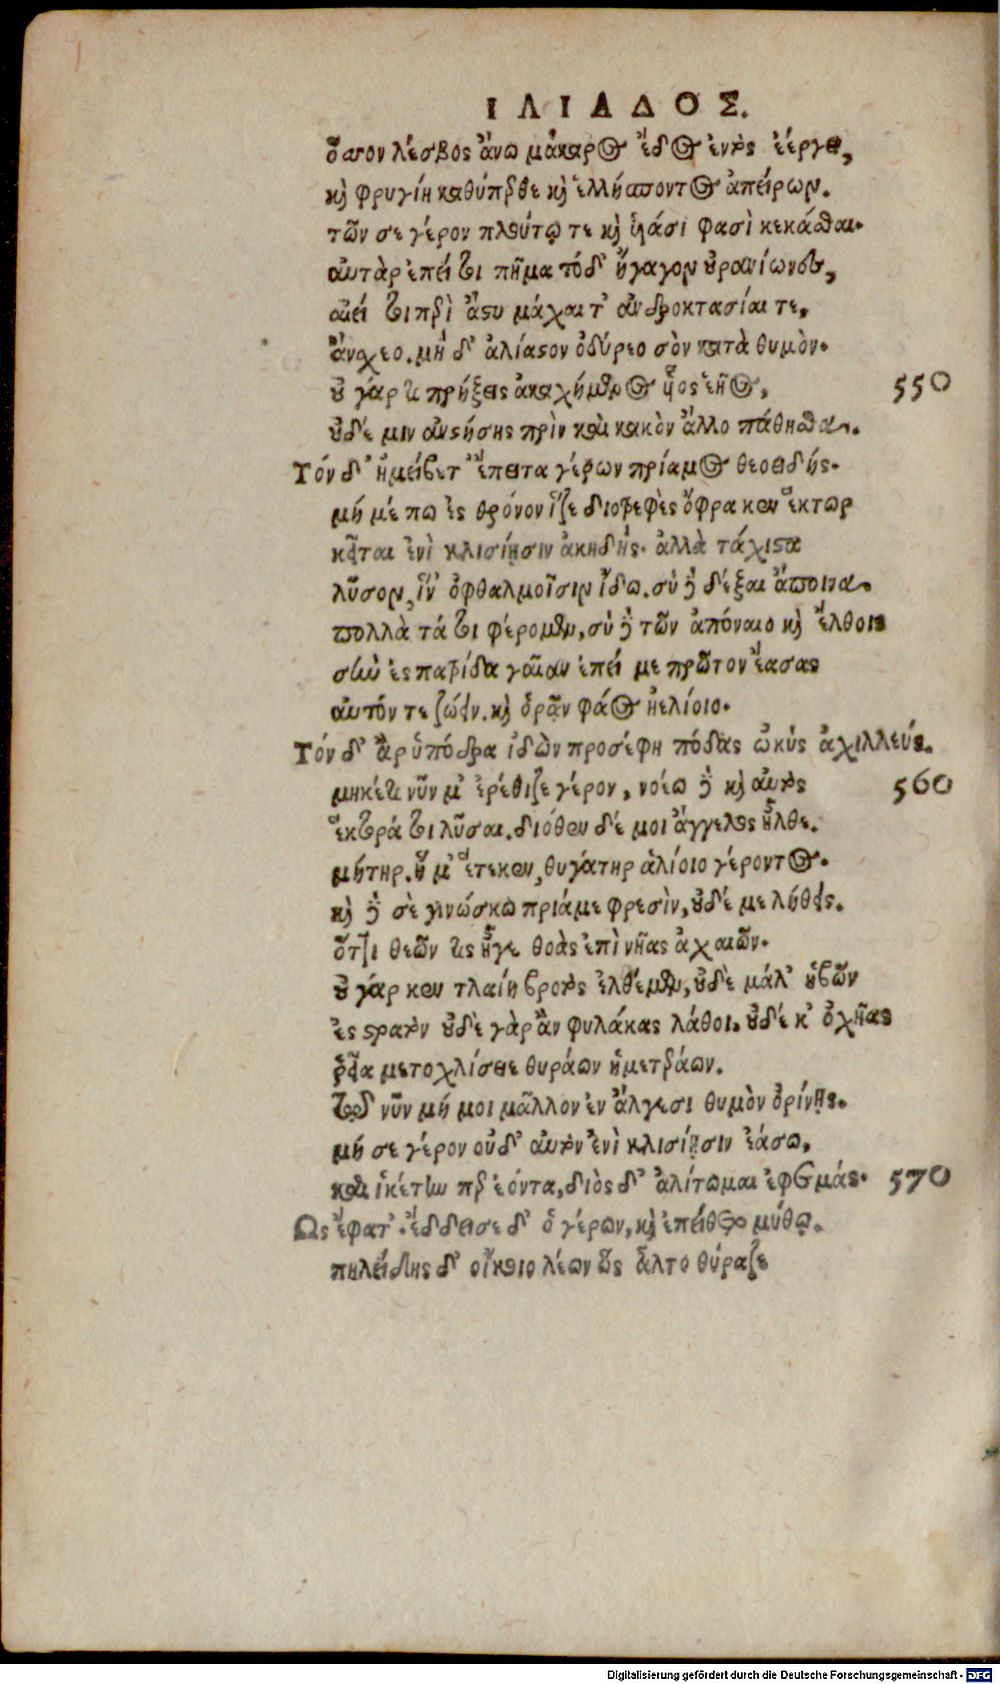 ΙΛΙΑΔΟΣ.
ὅσσον λέσβος ἄνω μάκαρος ἕδος ἐντὸς ἐέργει,
καὶ φρυγίη καθύπερθε καὶ ἑλλήσποντος ἀπείρων.
τῶν σε γέρον πλούτῳ τε καὶ ὑιάσι φασὶ κεκάσθαι·
αὐτὰρ ἐπεί τοι πῆμα τόδ' ἤγαγον οὐρανίωνες,
αἰεί τοι περὶ ἄστυ μάχαι τ' ἀνδροκτασίαι τε,
ἄνσχεο. μὴ δ' ἀλίαστον ὀδύρεο σὸν κατὰ θυμὸν·
οὐ γάρ τι πρήξεις ἀκαχήμενος υἷος ἑῆος, 550
οὐδέ μιν ἀνστήσης πρὶν καὶ κακὸν ἄλλο πάθησθα.
Τόν δ' ἠμείβετ' ἔπειτα γέρων πρίαμος θεοειδής·
μή μέ πω ἐς θρόνον ἵζε διοτρεφὲς ὄφρα κεν ἕκτωρ
κεῖται ἐνὶ κλισίῃσιν ἀκηδής· ἀλλὰ τάχιστα
λῦσον, ἵν' ὀφθαλμοῖσιν ἴδω. σὺ δὲ δέξαι ἄποινα.
πολλὰ τά τοι φέρομεν, σὺ δὲ τῶν ἀπόναιο καὶ ἔλθοις
σὴν ἐς πατρίδα γαῖαν ἐπεί με πρῶτον ἔασας
αὐτόν τε ζώειν. καὶ ὁρᾶν φάος ἠελίοιο·
Τόν δ' ἂρ ὑπόδρα ἰδὼν προσέφη πόδας ὠκὺς ἀχιλλεύς.
μηκέτι νῦν μ' ἐρέθιζε γέρον, νοέω δὲ καὶ αὐτὸς 560
ἕκτορά τοι λῦσαι. διόθεν δέ μοι ἄγγελος ἦλθε.
μήτηρ. ἥ μ' ἔτεκεν, θυγάτηρ ἁλίοιο γέροντος·
καὶ δὲ σὲ γινώσκω πρίαμε φρεσὶν, οὐδέ με λήθεις.
ὅττι θεῶν τις ἦγε θοὰς ἐπὶ νῆας ἀχαιῶν·
οὐ γάρ κεν τλαίη βροτὸς ἐλθέμεν, οὐδὲ μάλ' ἡβῶν
ἐς στρατὸν οὐδὲ γὰρ ἂν φυλάκας λάθοι. οὐδέ κ' ὀχῆας
ῥεῖα μετοχλίσειε θυράων ἡμετεράων.
τῷ νῦν μή μοι μᾶλλον ἐν ἄλγεσι θυμὸν ὀρίνῃς·
μή σε γέρον οὐδ' αὐτὸν ἐνὶ κλισίῃσιν ἐάσω,
καὶ ἱκέτην περ ἐόντα, διὸς δ' ἀλίτωμαι ἐφετμάς· 570
Ως ἔφατ'. ἔδδεισε δ' ὁ γέρων, καὶ ἐπείθετο μύθῳ.
πηλείδης δ' οἴκοιο λέων ὣς ἆλτο θύραζε
Digitalisierung gefördert durch die Deutsche Forschungsgemeinschaft - DFG